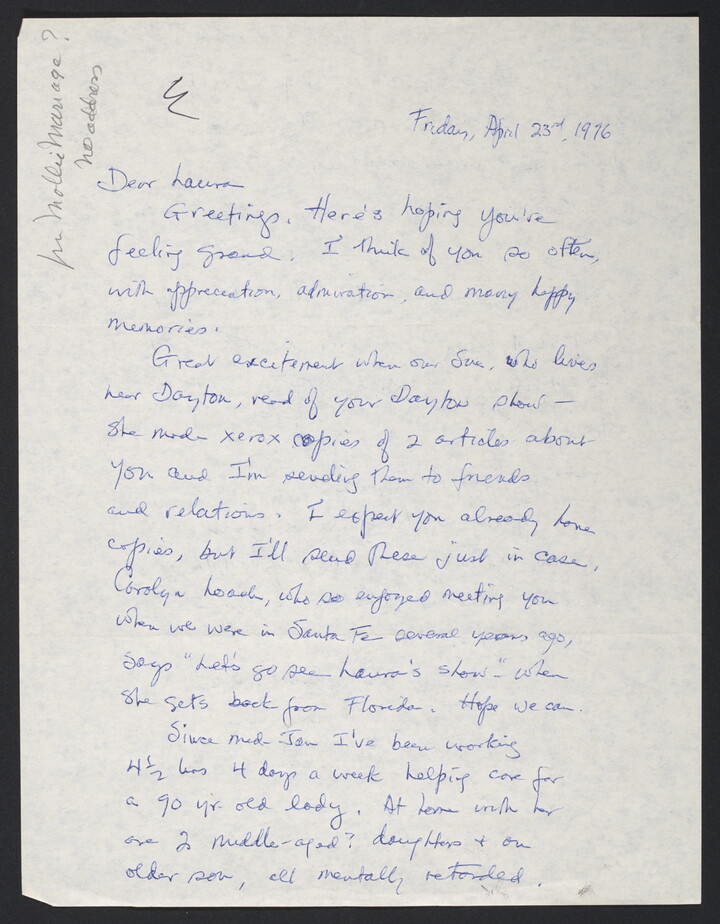 Mollie Marriage?
no address
Friday, April 23rd, 1976
Dear Laura
Greetings. Here's hoping you're
feeling grand. I think of you so often,
with appreciation, admiration, and many happy
memories.
Great excitement when our Sue, who lives
near Dayton, read of your Dayton show —
she made xerox copies of 2 articles about
you and I'm sending them to friends
and relations. I expect you already have
copies, but I'll send these just in case.
Carolyn Loach, who so enjoyed meeting you
when we were in Santa Fe several years ago,
says "Let's go see Laura's show" – when
she gets back from Florida. Hope we can.
Since mid-Jan I've been working
4½ hrs 4 days a week helping care for
a 90 yr old lady. At home with her
are 2 middle-aged? daughters + an
older son, all mentally retarded.